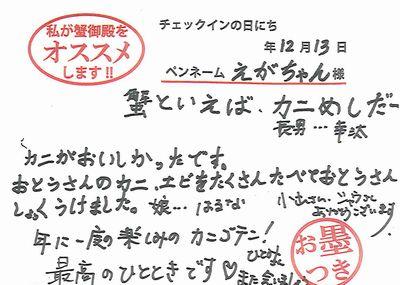 私が蟹御殿を
オススメ
します!!
チェックインの日にち
年12月13日
ペンネーム えがちゃん 様
蟹といえば、カニめしだー
長男…幸汰
カニがおいしかったです。
おとうさんのカニ、エビをたくさんたべておとうさん
しょっくうけました。娘…はるな
ありがとうございます
年に一度の楽しみのカニゴテン!
最高のひとときです♡
お墨
つき